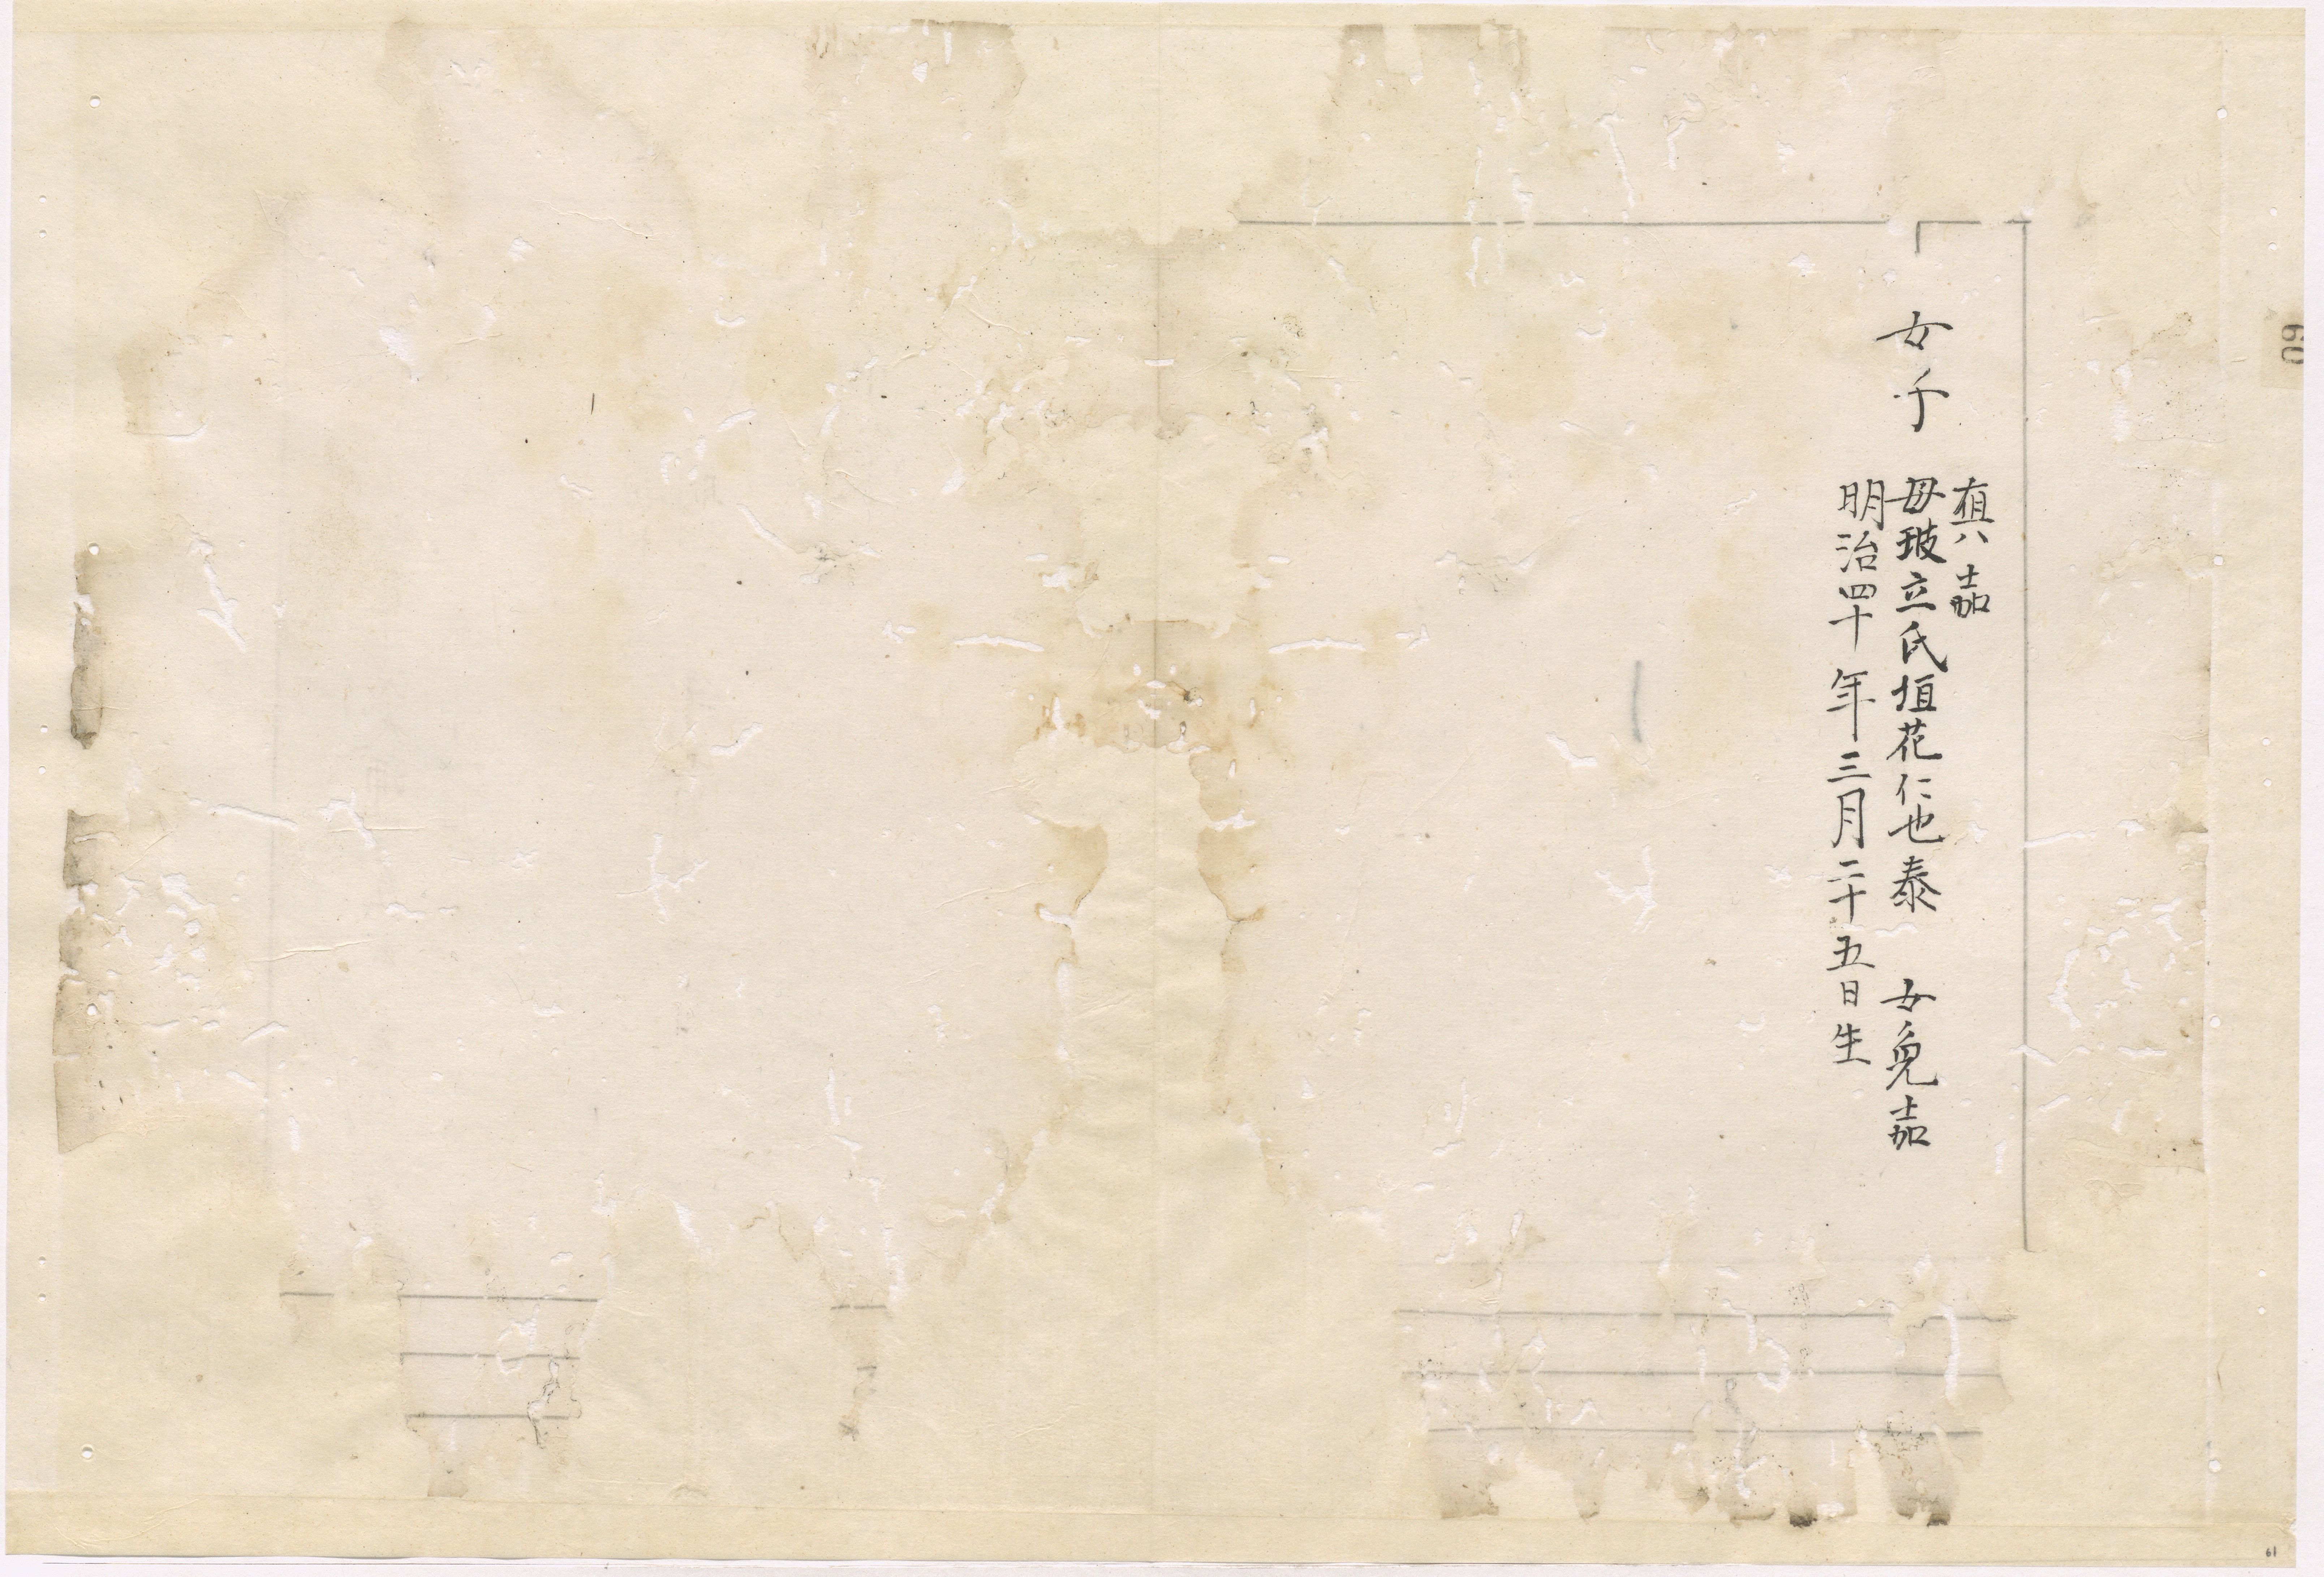 女子
真嘉
母玻立氏垣花仁也泰 女免嘉
明治四十年三月二十五日生
60
61